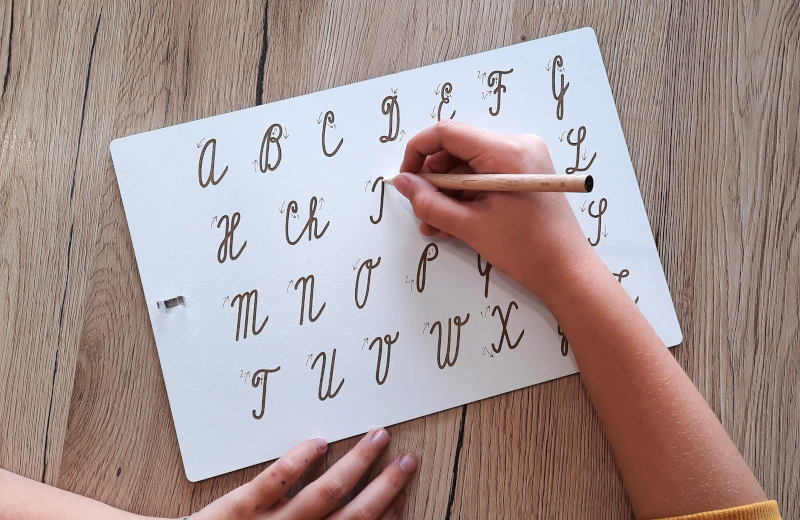 A B C D E F G
H Ch I L
M N O P S
T U V W X